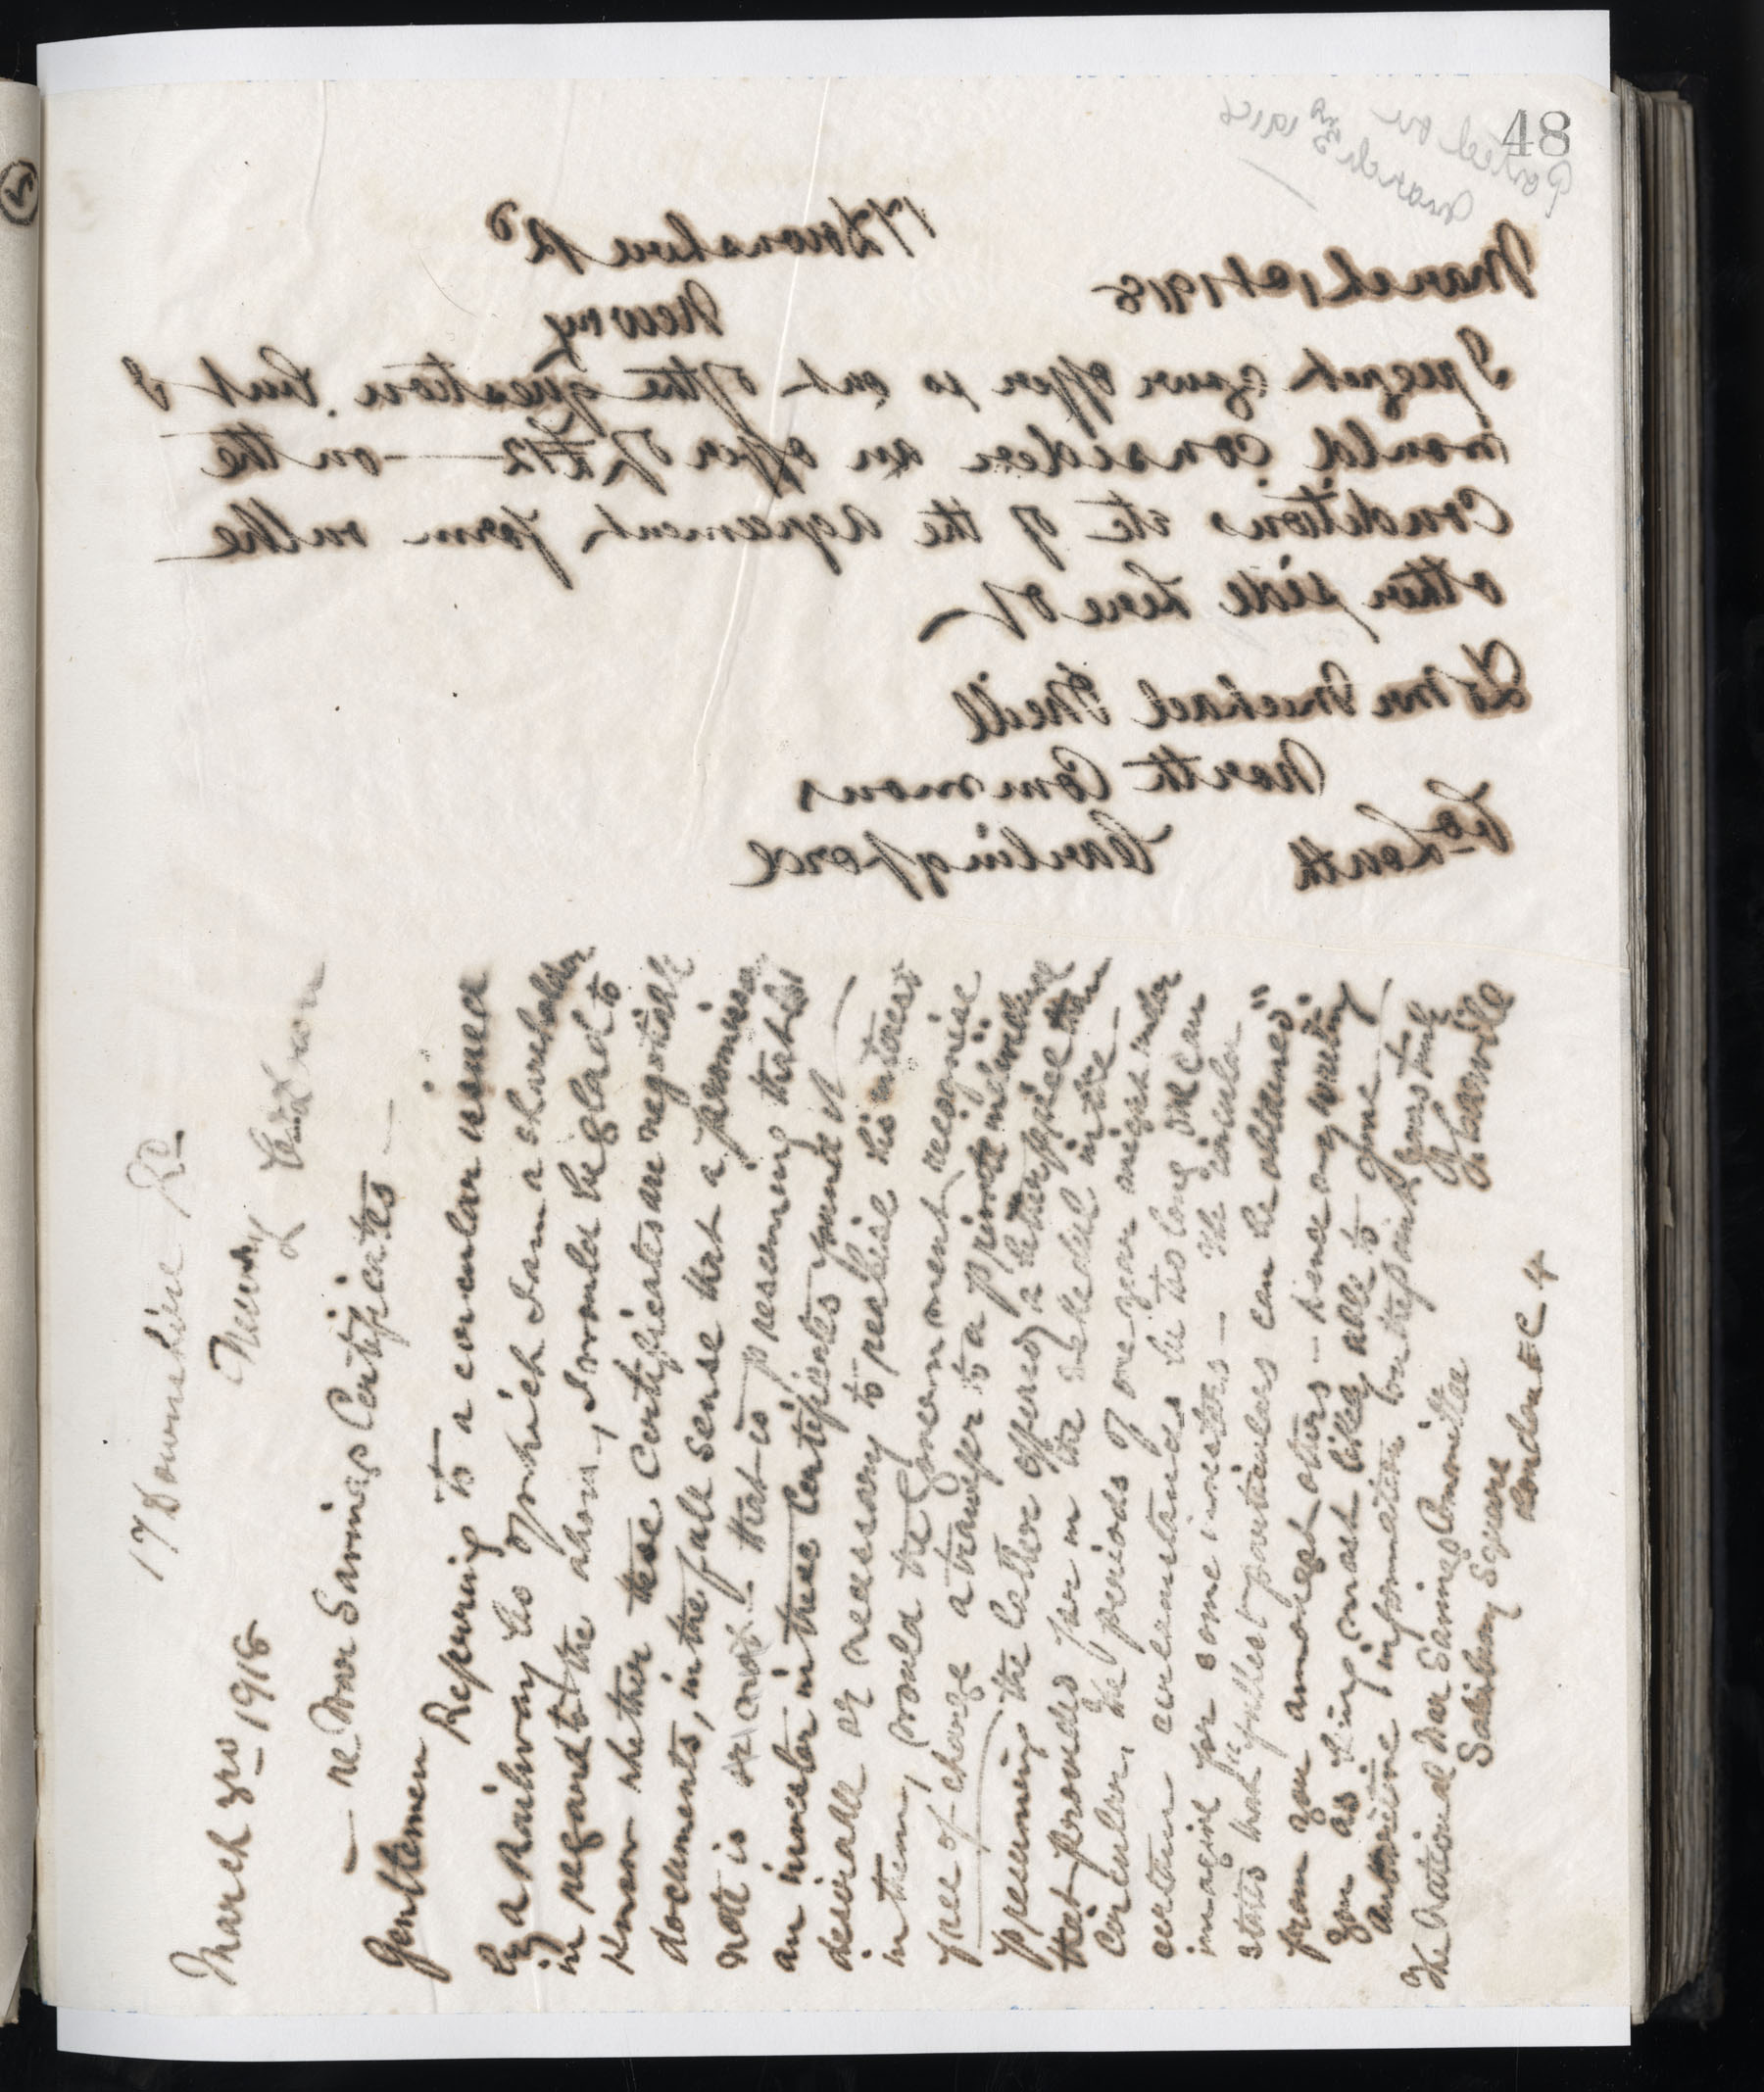 48
Posted on
March 3rd 1918
17 Downshire Rd
March 1st 1918
Newry
I regret your offer is out of the question. But I
would consider an offer of £42 — on the
conditions etc of the agreement form on the
other side hereof —
To Mr Michael Neill
North Commons
Carlingford
Co Louth
17 Downshire Rd
March 3rd 1918
Newry Co Down
— re War Savings Certificates —
Gentlemen
Referring to a circular issued
by a Railway Co of which I am a shareholder
in regard to the above, I would be glad to
know whether these Certificates are negotiable
documents, in the full sense that a promissory
note is or not — that is presuming that
an investor in these Certificates found it
desirable or necessary to realise his interest
in them, would the Government recognise
free of charge a transfer to a private individual
presuming the latter offered a better price than
that provided for in the schedule in the
Circular. The periods of one year might under
certain circumstances be too long one can
imagine for some investors — the circular
states that "fullest particulars can be obtained"
from you amongst others — hence my writing
you as being most likely able to give
authoritative information on the point
Yours truly
The National War Savings Committee
Salisbury Square
London EC 4